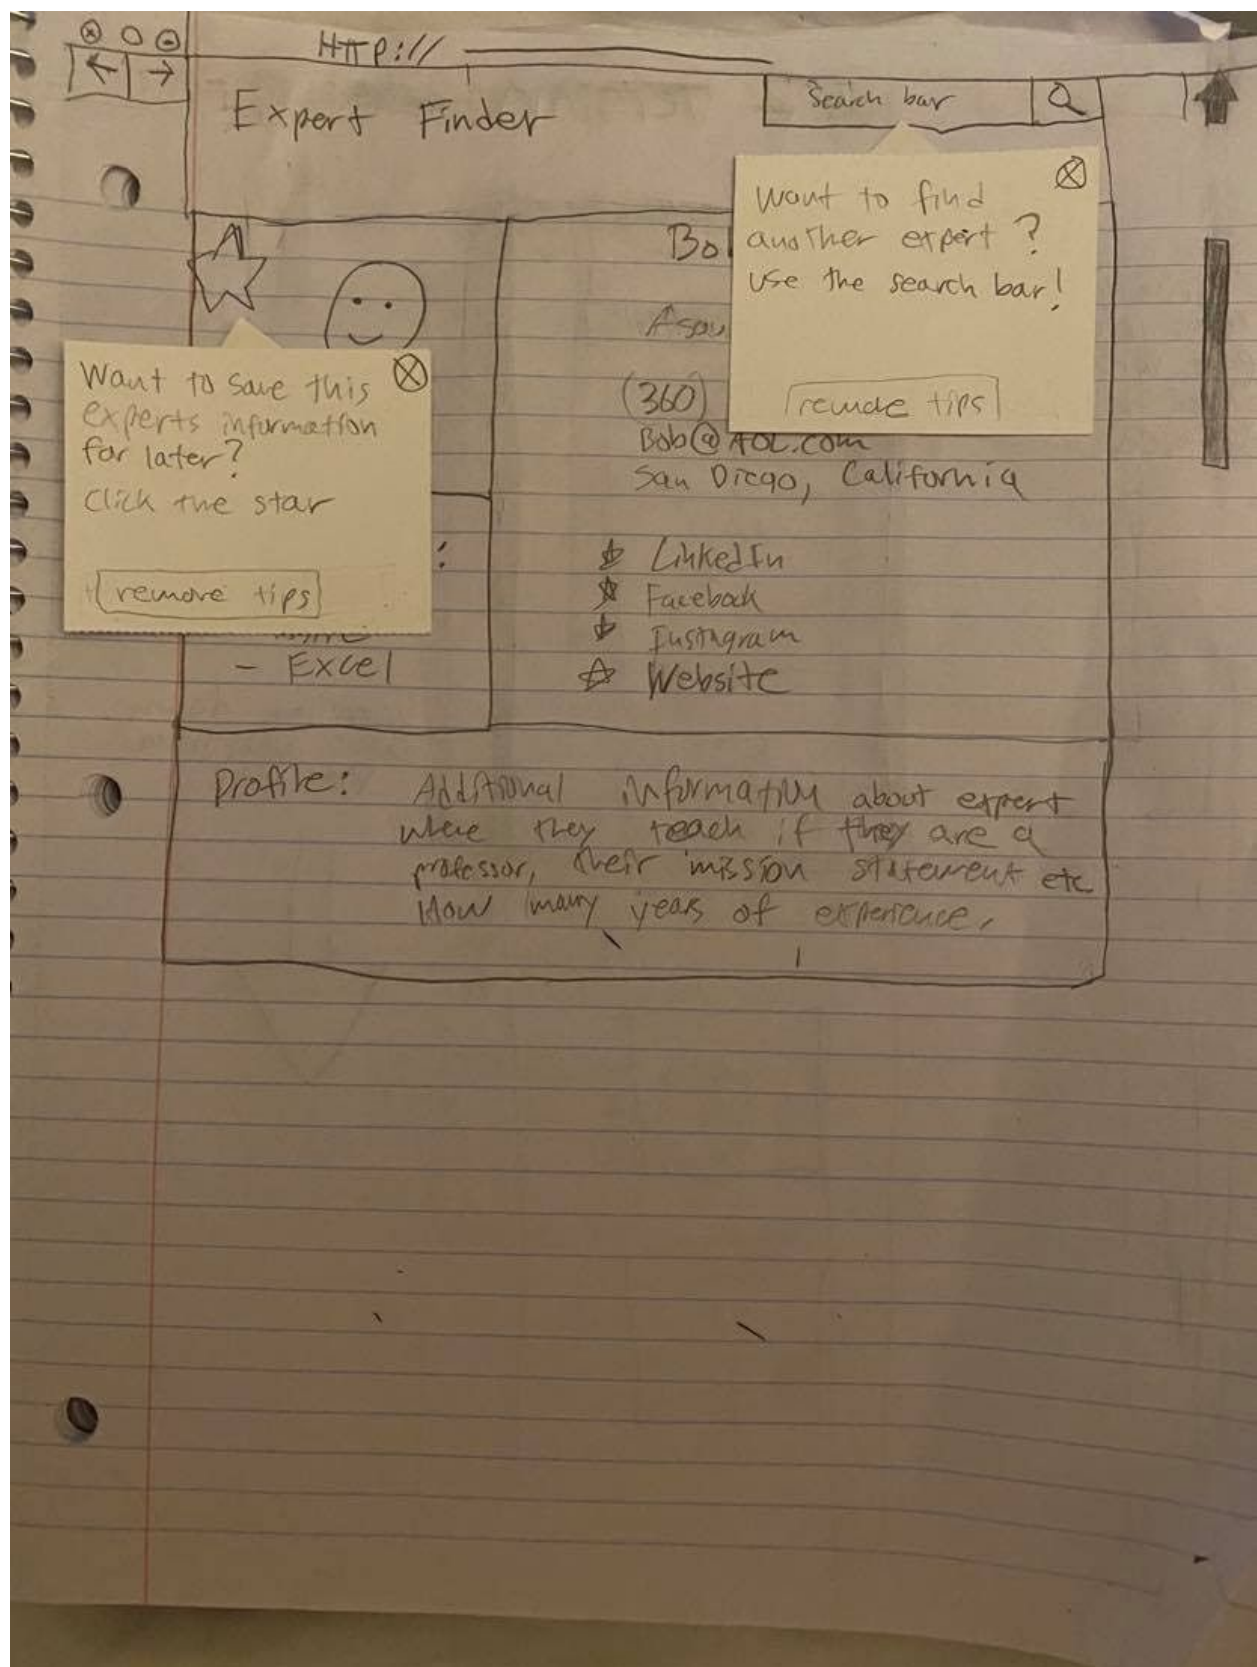 HTTP://
Expert Finder
Search bar
Want to find
another expert?
Use the search bar!
remove tips
Bo
(360)
Bob@AOL.com
San Diego, California
Want to save this
experts information
for later?
Click the star
remove tips
:
- Excel
LinkedIn
Facebook
Instagram
Website
Profile: Additional information about expert
where they teach if they are a
professor, their mission statement etc
How many years of experience.